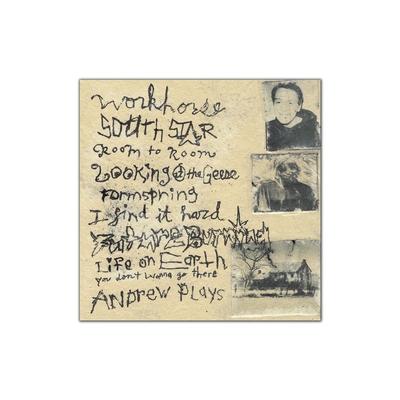 workhorse
SOUTH STAR
Room to Room
Looking @ the Geese
Formspring
I find it hard
Life on Earth
you don't wanna go there
ANDREW PLAYS